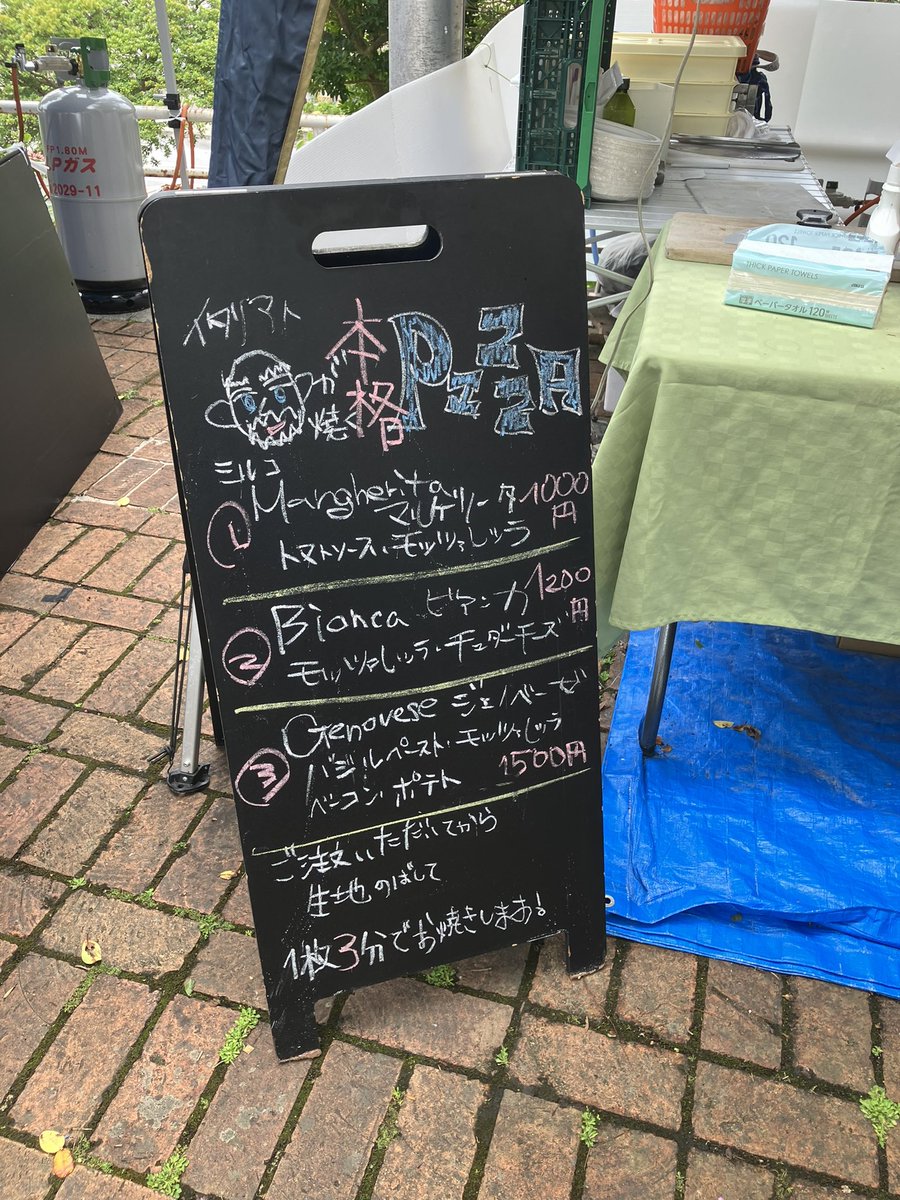 FP1.80M
LPガス
2029-11
THICK PAPER TOWELS
ペーパータオル 120
イタリアト
ミルコ
が焼く
本格
PIZZA
① Margherita 1000円
マルゲリータ
トマトソース・モッツァレッラ
② Bianca ビアンカ 1200円
モッツァレッラ・チェダーチーズ
③ Genovese ジェノベーゼ
バジルペースト・モッツァレッラ
ベーコン・ポテト 1500円
ご注文いただいてから
生地のばして
1枚3分でお焼きします!